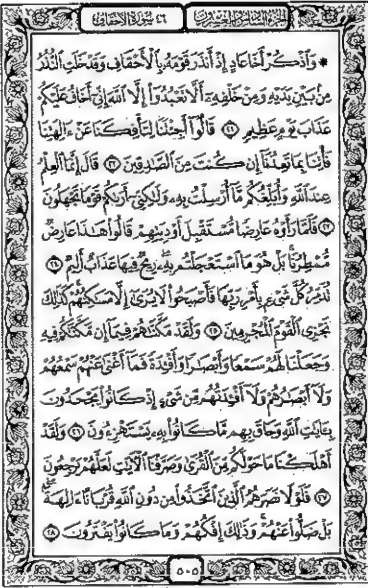 الجزء السادس والعشرون ٤٦ سورة الأحقاف
۞ وَٱذۡكُرۡ أَخَا عَادٍ إِذۡ أَنذَرَ قَوۡمَهُۥ بِٱلۡأَحۡقَافِ وَقَدۡ خَلَتِ ٱلنُّذُرُ
مِنۢ بَيۡنِ يَدَيۡهِ وَمِنۡ خَلۡفِهِۦٓ أَلَّا تَعۡبُدُوٓاْ إِلَّا ٱللَّهَ إِنِّيٓ أَخَافُ عَلَيۡكُمۡ
عَذَابَ يَوۡمٍ عَظِيمٖ ٢١ قَالُوٓاْ أَجِئۡتَنَا لِتَأۡفِكَنَا عَنۡ ءَالِهَتِنَا
فَأۡتِنَا بِمَا تَعِدُنَآ إِن كُنتَ مِنَ ٱلصَّـٰدِقِينَ ٢٢ قَالَ إِنَّمَا ٱلۡعِلۡمُ
عِندَ ٱللَّهِ وَأُبَلِّغُكُم مَّآ أُرۡسِلۡتُ بِهِۦ وَلَـٰكِنِّيٓ أَرَىٰكُمۡ قَوۡمٗا تَجۡهَلُونَ
٢٣ فَلَمَّا رَأَوۡهُ عَارِضٗا مُّسۡتَقۡبِلَ أَوۡدِيَتِهِمۡ قَالُواْ هَـٰذَا عَارِضٞ
مُّمۡطِرُنَاۚ بَلۡ هُوَ مَا ٱسۡتَعۡجَلۡتُم بِهِۦۖ رِيحٞ فِيهَا عَذَابٌ أَلِيمٞ ٢٤
تُدَمِّرُ كُلَّ شَيۡءِۭ بِأَمۡرِ رَبِّهَا فَأَصۡبَحُواْ لَا يُرَىٰٓ إِلَّا مَسَـٰكِنُهُمۡۚ كَذَٰلِكَ
نَجۡزِي ٱلۡقَوۡمَ ٱلۡمُجۡرِمِينَ ٢٥ وَلَقَدۡ مَكَّنَّـٰهُمۡ فِيمَآ إِن مَّكَّنَّـٰكُمۡ فِيهِ
وَجَعَلۡنَا لَهُمۡ سَمۡعٗا وَأَبۡصَـٰرٗا وَأَفۡـِٔدَةٗ فَمَآ أَغۡنَىٰ عَنۡهُمۡ سَمۡعُهُمۡ
وَلَآ أَبۡصَـٰرُهُمۡ وَلَآ أَفۡـِٔدَتُهُم مِّن شَيۡءٍ إِذۡ كَانُواْ يَجۡحَدُونَ
بِـَٔايَـٰتِ ٱللَّهِ وَحَاقَ بِهِم مَّا كَانُواْ بِهِۦ يَسۡتَهۡزِءُونَ ٢٦ وَلَقَدۡ
أَهۡلَكۡنَا مَا حَوۡلَكُم مِّنَ ٱلۡقُرَىٰ وَصَرَّفۡنَا ٱلۡأٓيَـٰتِ لَعَلَّهُمۡ يَرۡجِعُونَ
٢٧ فَلَوۡلَا نَصَرَهُمُ ٱلَّذِينَ ٱتَّخَذُواْ مِن دُونِ ٱللَّهِ قُرۡبَانًا ءَالِهَةَۢۖ
بَلۡ ضَلُّواْ عَنۡهُمۡۚ وَذَٰلِكَ إِفۡكُهُمۡ وَمَا كَانُواْ يَفۡتَرُونَ ٢٨
٥٠٥